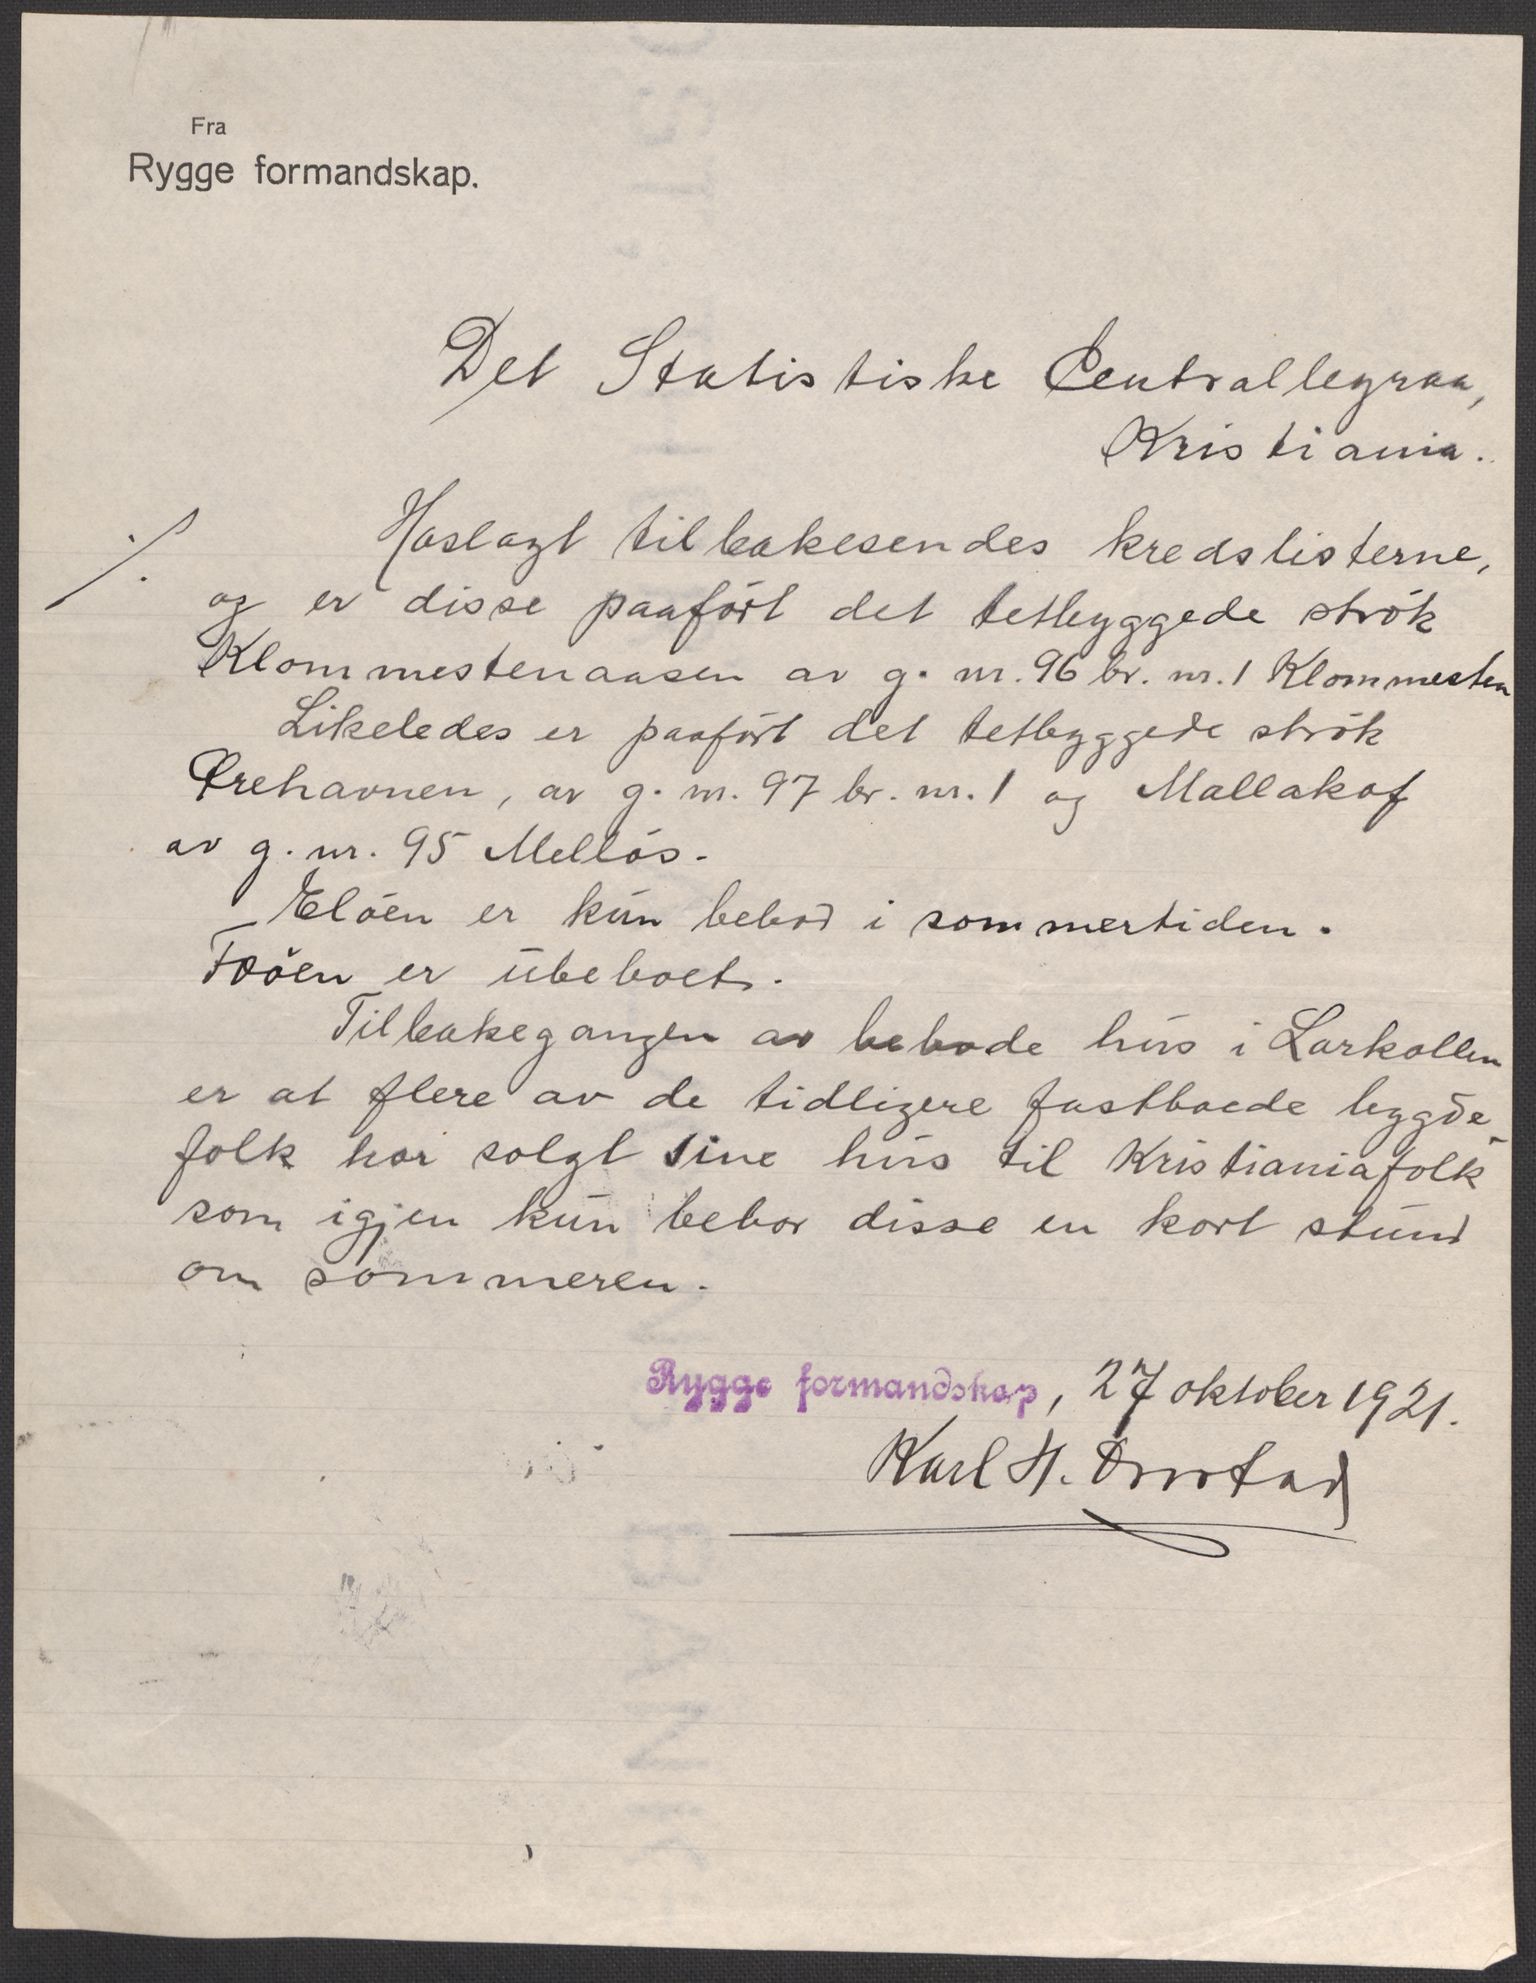 Fra
Rygge formandskap.
Det Statistiske Centralbyraa,
Kristiania.
./. Haslagt tilbakesendes kredslisterne,
og er disse paaført det tetbyggede strök
Klommestenaasen av g. nr. 96 br. nr. 1 Klommesten
Likeledes er paaført det tetbyggede strök
Ørehavnen, av g. nr. 97 br. nr. 1 og Mallakof
av g. nr. 95 Mellös.
Elöen er kun bebod i sommertiden.
er ubeboet.
Tilbakegangen av bebode hus i Larkollen
er at flere av de tidligere fastboede bygde-
folk har solgt sine hus til Kristianiafolk
som igjen kun bebor disse en kort stund
om sommeren.
Rygge formandskap, 27 oktober 1921.
Karl H.